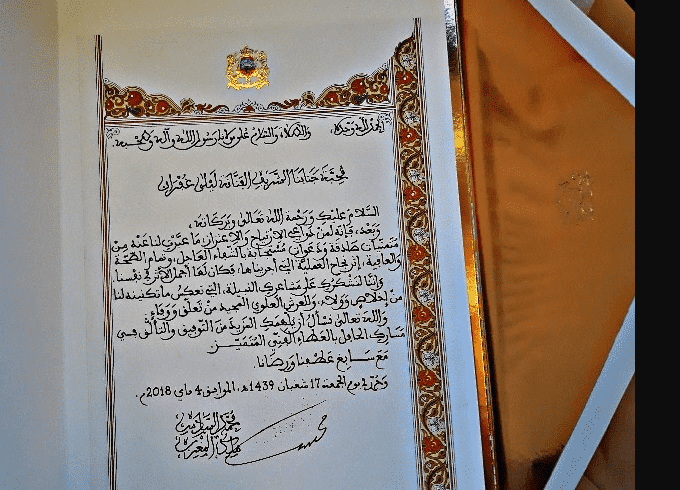 الحمد لله وحده، والصلاة والسلام على مولانا رسول الله وآله وصحبه.
محبة جنابنا الشريف الفنانة ليلى غفران
السلام عليك ورحمة الله تعالى وبركاته،
وبعد، فإنه لمن دواعي الارتياح والاعتزاز ما عبرت لنا عنه من
متمنيات صادقة ودعوات مستجابة بالشفاء العاجل، وتمام الصحة
والعافية، إثر نجاح العملية التي أجريناها، فكان لها أجمل الأثر في نفسنا.
وإننا لنشكرك على مشاعرك النبيلة، التي تعكس ما تكنينه لنا
من إخلاص وولاء، وللعرش العلوي المجيد من تعلق ووفاء.
والله تعالى نسأل أن يلهمك المزيد من التوفيق والتألق في
مسارك الحافل بالعطاء الفني المتميز
مع سابغ عطفنا ورضانا.
وحرر في يوم الجمعة 17 شعبان 1439هـ، الموافق 4 ماي 2018م.
محمد السادس
ملك المغرب